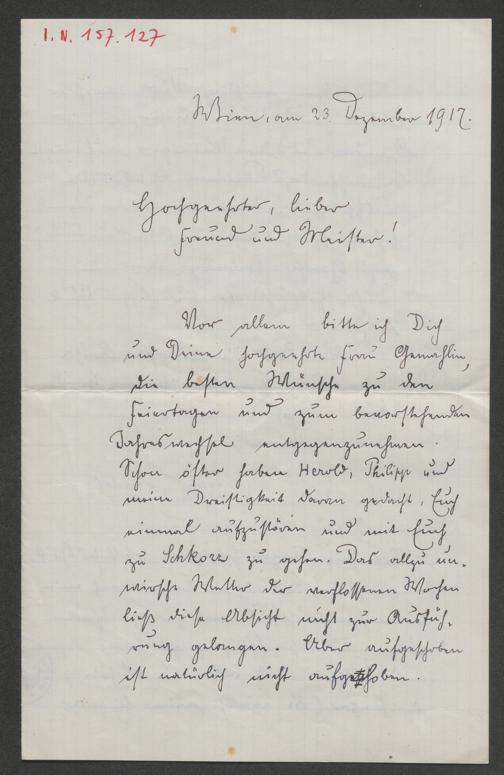 I. N. 157.127
Wien, am 23. Dezember 1917.
Hochgeehrter, lieber
Freund und Meister!
Vor allem bitte ich Dich
und Deine hochgeehrte Frau Gemahlin,
die besten Wünsche zu den
Feiertagen und zum bevorstehenden
Jahreswechsel entgegenzunehmen.
Schon öfter haben Herold, Philipp und
meine Dreistigkeit daran gedacht, Euch
einmal aufzustören und mit Euch
zu gehen. Das allzu un-
wirsche Wetter der verflossenen Wochen
ließ diese Absicht nicht zur Ausfüh-
rung gelangen. Aber aufgeschoben
ist natürlich nicht aufgehoben.